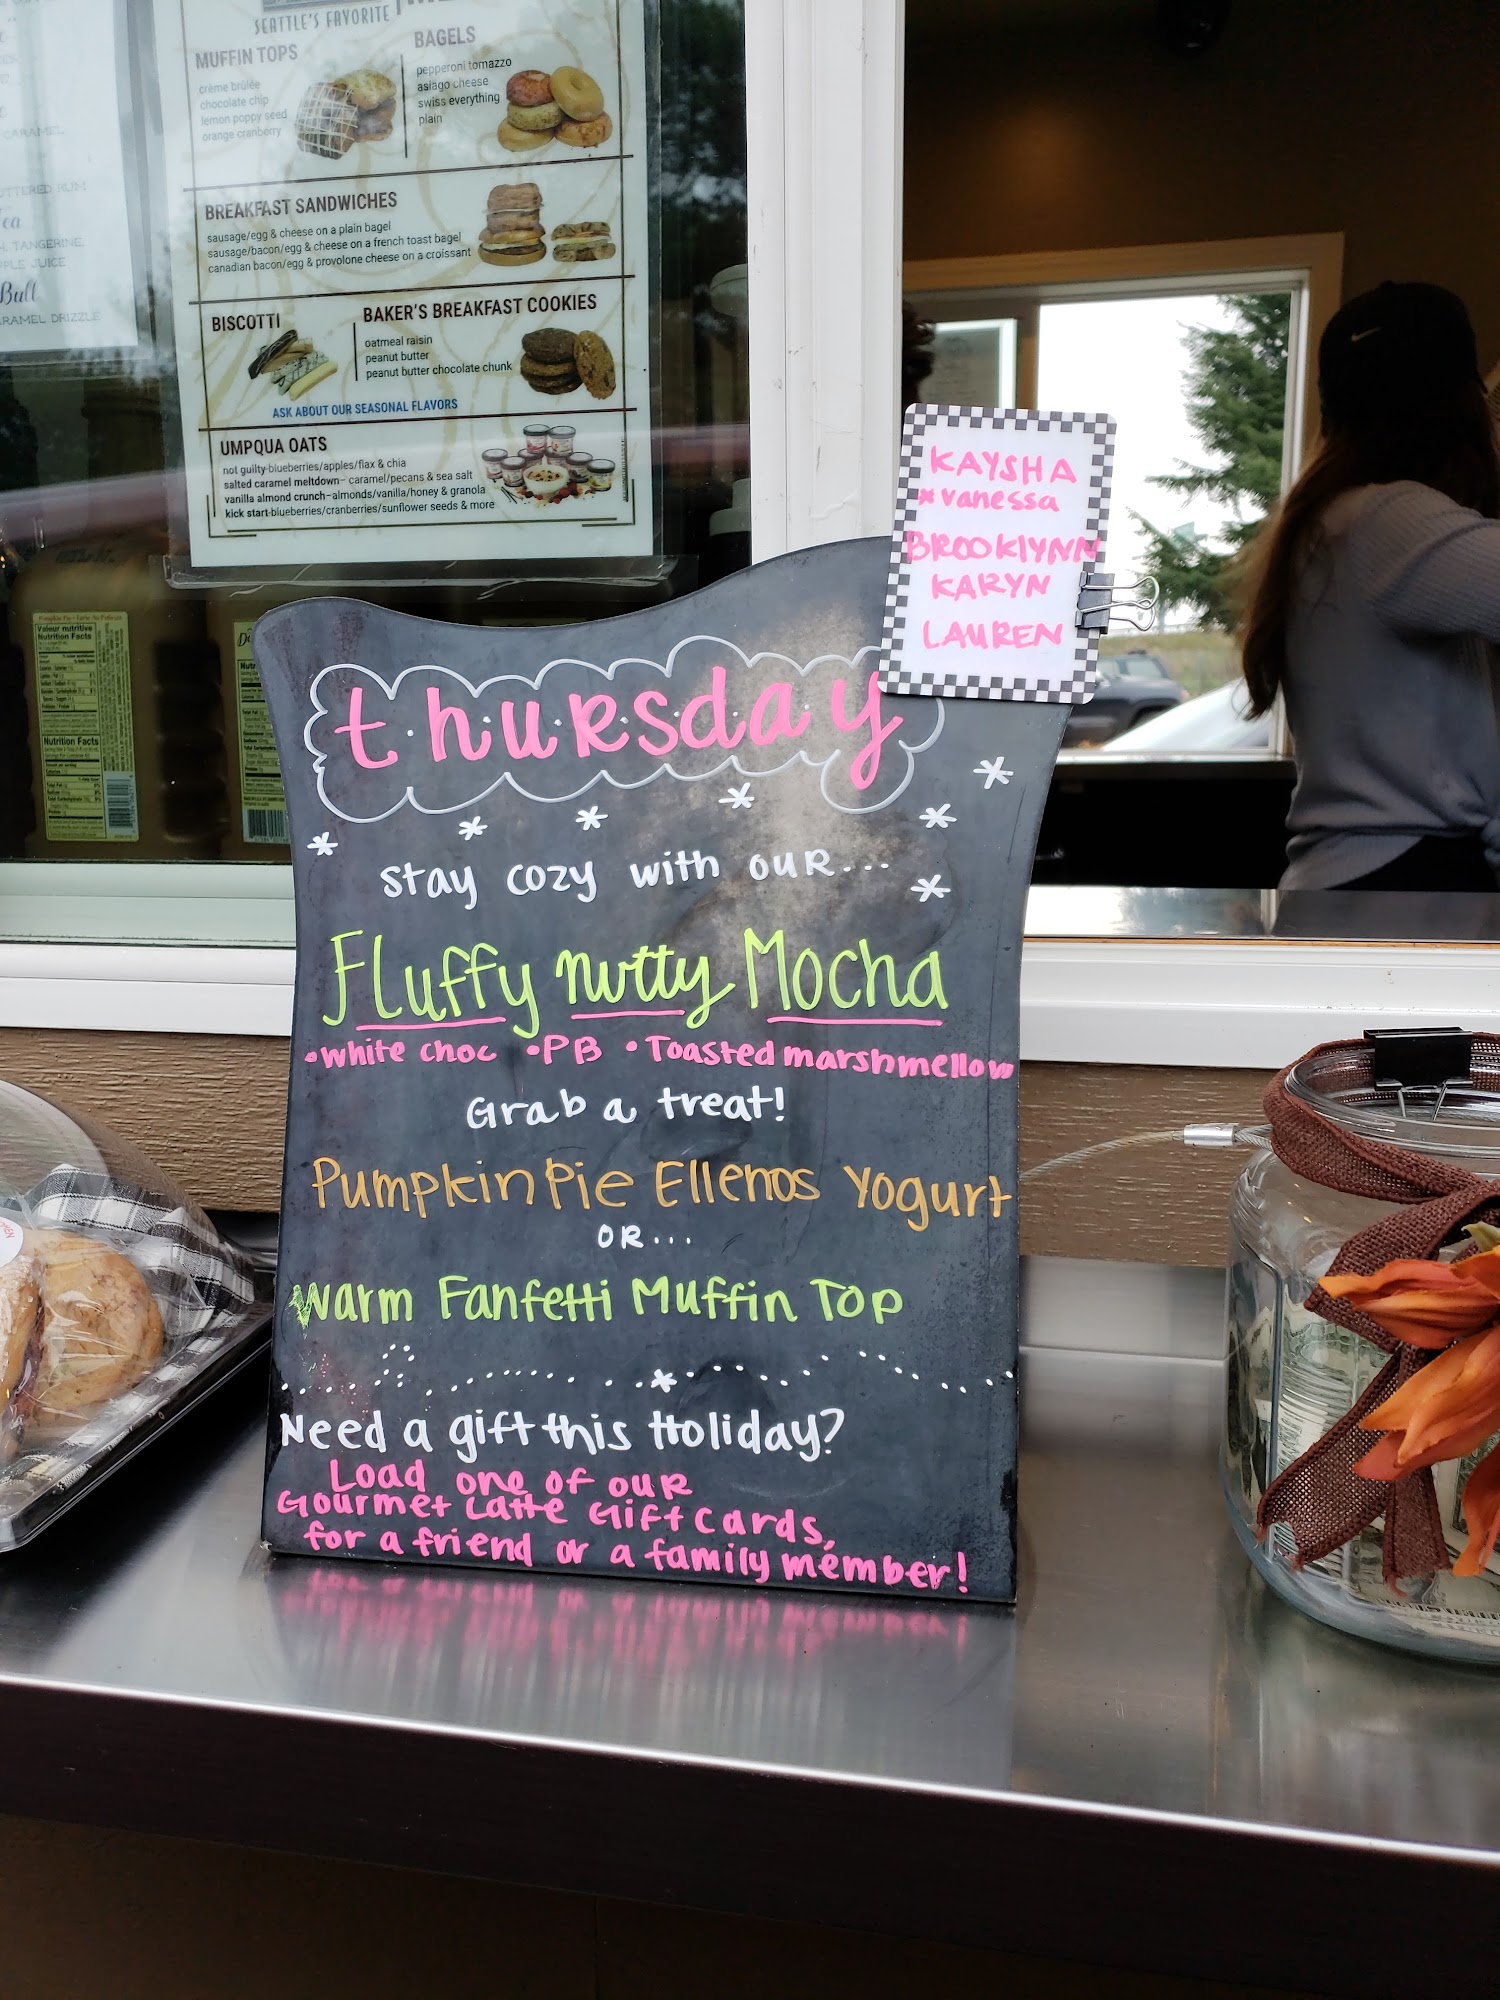 CARAMEL
TANGERINE,
JUICE
Bull
DRIZZLE
SEATTLE'S FAVORITE
MUFFIN TOPS
crème brûlée
chocolate chip
lemon poppy seed
orange cranberry
BAGELS
pepperoni tomazzo
asiago cheese
swiss everything
plain
BREAKFAST SANDWICHES
sausage/egg & cheese on a plain bagel
sausage/bacon/egg & cheese on a french toast bagel
canadian bacon/egg & provolone cheese on a croissant
BISCOTTI
BAKER'S BREAKFAST COOKIES
oatmeal raisin
peanut butter
peanut butter chocolate chunk
ASK ABOUT OUR SEASONAL FLAVORS
UMPQUA OATS
not guilty-blueberries/apples/flax & chia
salted caramel meltdown- caramel/pecans & sea salt
vanilla almond crunch-almonds/vanilla/honey & granola
kick start-blueberries/cranberries/sunflower seeds & more
Valeur nutritive
Nutrition Facts
Nutrition Facts
KAYSHA
*vanessa
BROOKlYNN
KARYN
LAUREN
thuRsday
stay cozy with ouR...
Fluffy nutty Mocha
•white choc •PB •Toasted marshmellow
Grab a treat!
Pumpkin Pie Ellenos Yogurt
OR...
Warm Fanfetti Muffin Top
Need a gift this Holiday?
Load one of ouR
Gourmet Latte Gift cards,
for a friend or a family member!